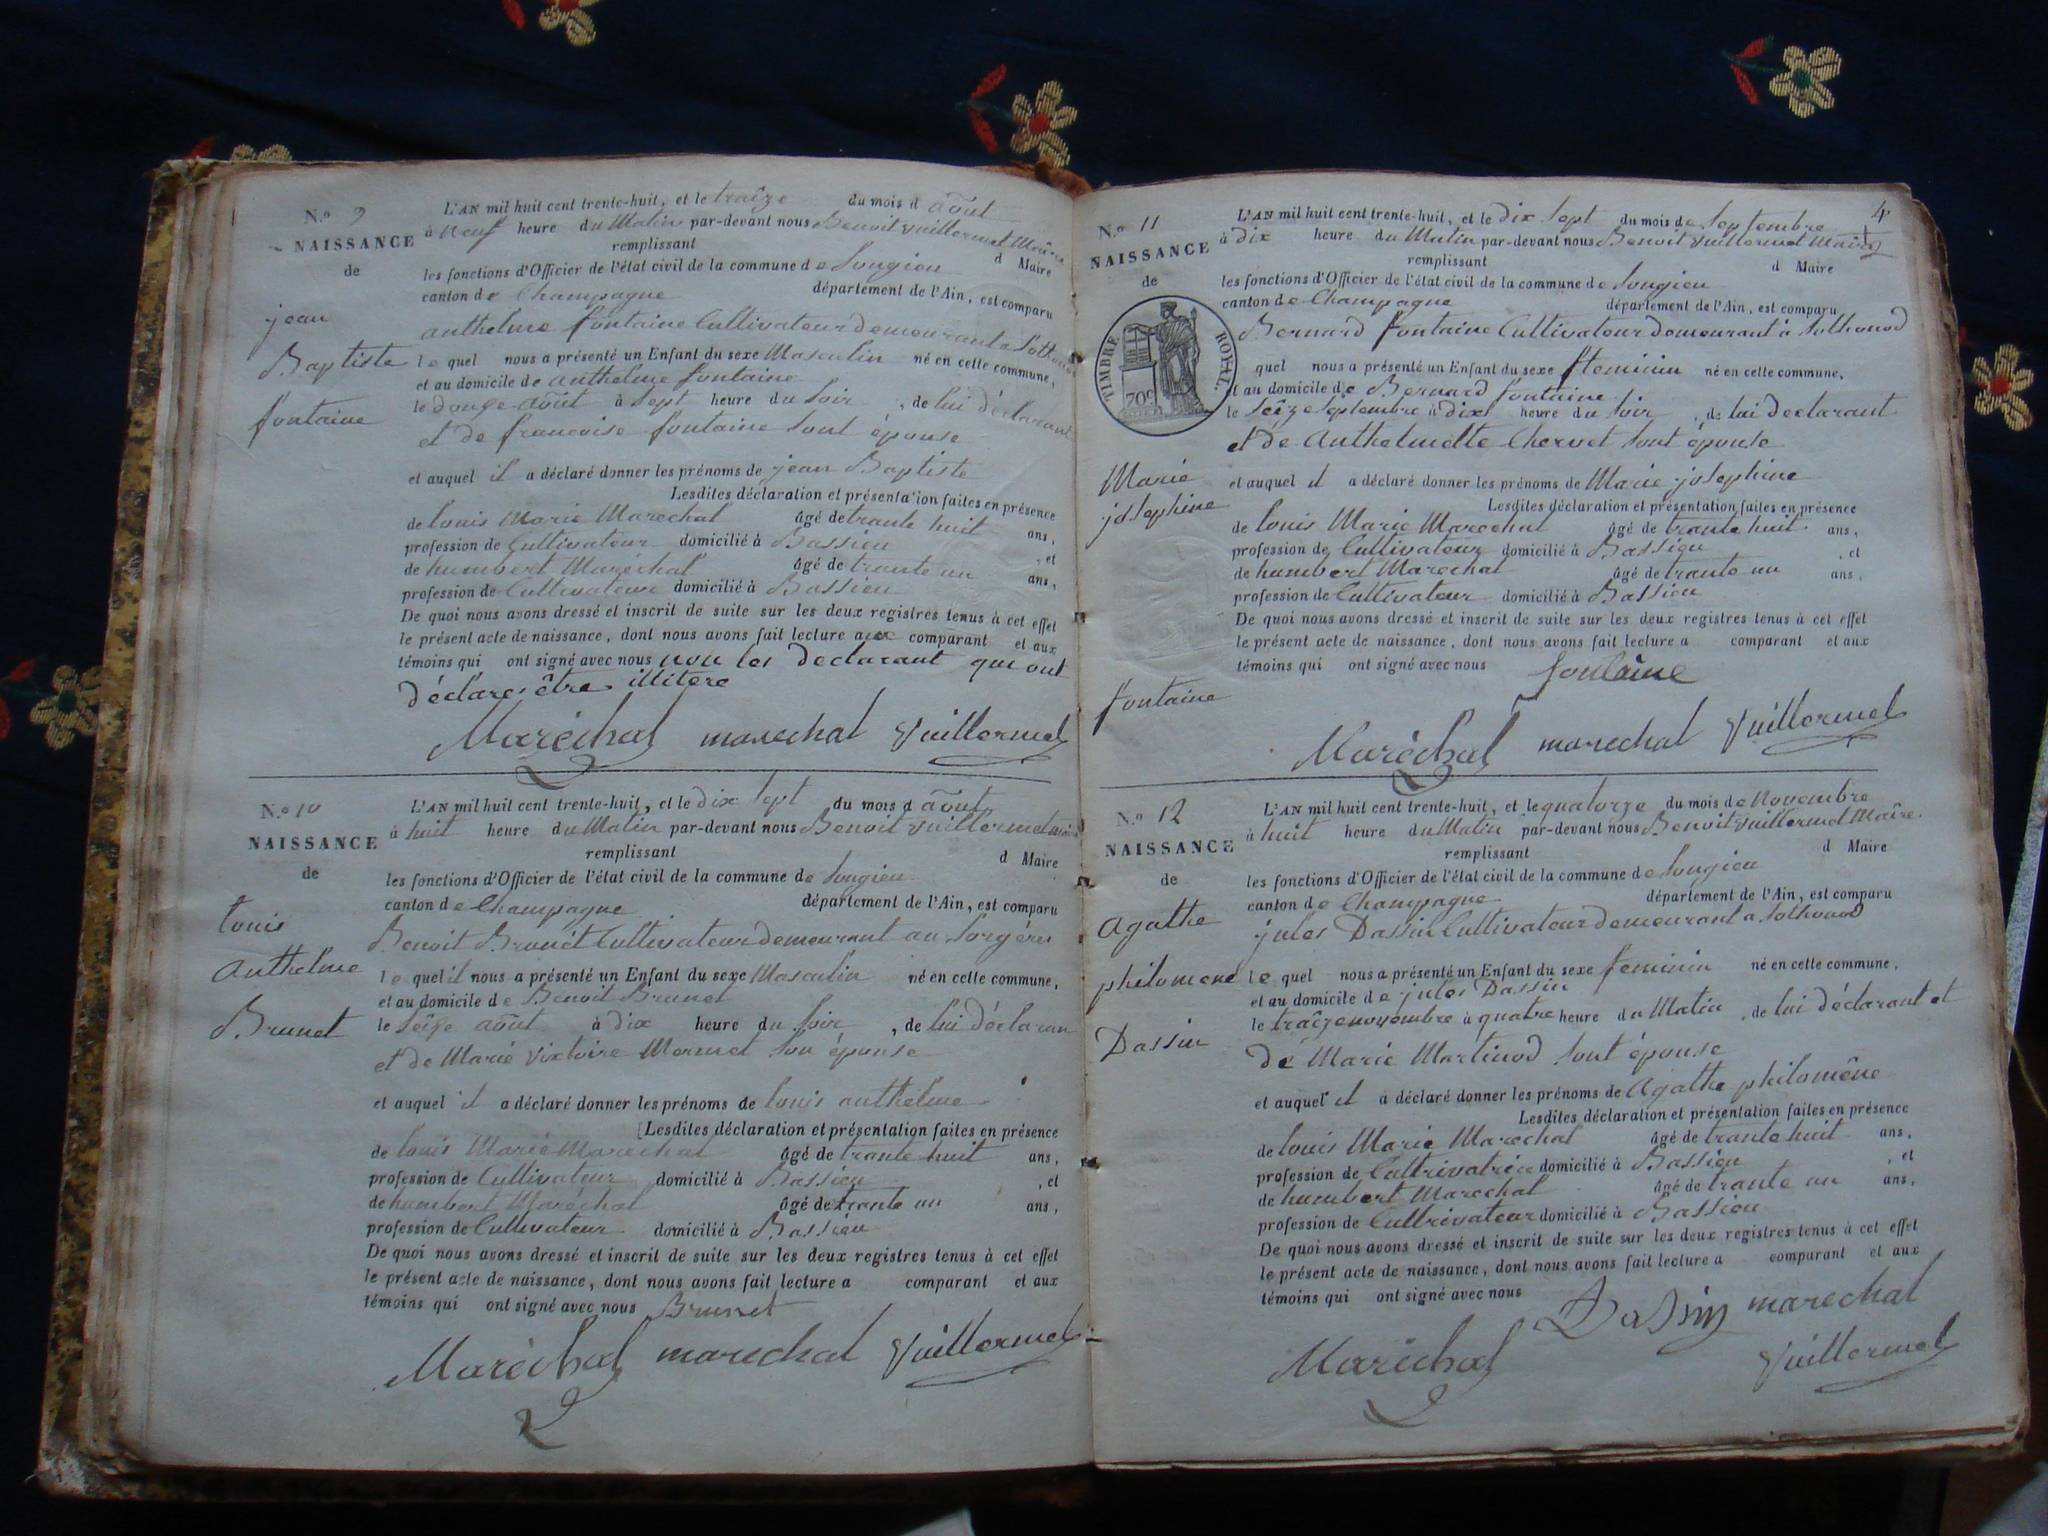 N.º 9
NAISSANCE
de
jean
Baptiste
fontaine
L'AN mil huit cent trente-huit, et le traîze du mois d août
à neuf heure du Matin par-devant nous Benoit Vuillermet Maire
remplissant d Maire
les fonctions d'Officier de l'état civil de la commune de Songieu
canton de Champagne département de l'Ain, est comparu
anthelme fontaine Cultivateur demeurant a Sothonod
le quel nous a présenté un Enfant du sexe Masculin né en cette commune,
et au domicile de anthelme fontaine
le douze août à Sept heure du Soir, de lui déclarant
et de francoise fontaine Sont épouse
et auquel il a déclaré donner les prénoms de jean Baptiste
Lesdites déclaration et présentation faites en présence
de louis Marie Marechal âgé de trante huit ans,
profession de Cultivateur domicilié à Bassieu, et
de humbert Maréchal âgé de trante un ans,
profession de Cultivateur domicilié à Bassieu
De quoi nous avons dressé et inscrit de suite sur les deux registres tenus à cet effet
le présent acte de naissance, dont nous avons fait lecture aux comparant et aux
témoins qui ont signé avec nous non les declarant qui ont
déclares être illitere
Maréchal marechal Vuillermet
N.º 10
NAISSANCE
de
louis
Anthelme
Brunet
L'AN mil huit cent trente-huit, et le dix Sept du mois d août
à huit heure du Matin par-devant nous Benoit Vuillermet maire
remplissant d Maire
les fonctions d'Officier de l'état civil de la commune de Songieu
canton de Champagne département de l'Ain, est comparu
Benoit Brunet Cultivateur demeurant au Sorgéres
le quel il nous a présenté un Enfant du sexe Masculin né en cette commune,
et au domicile de Benoit Brunet
le Seîze août à dix heure du Soir, de lui déclaran
et de Marie Vixtoire Mermet Son épouse
et auquel il a déclaré donner les prénoms de louis anthelme
Lesdites déclaration et présentation faites en présence
de louis Marie Marechal âgé de trante huit ans,
profession de Cultivateur domicilié à Bassieu, et
de humbert Maréchal âgé de trante un ans,
profession de Cultivateur domicilié à Bassieu
De quoi nous avons dressé et inscrit de suite sur les deux registres tenus à cet effet
le présent acte de naissance, dont nous avons fait lecture a comparant et aux
témoins qui ont signé avec nous Brunet
Maréchal marechal Vuillermet
4
N.º 11
NAISSANCE
de
TIMBRE ROYAL.
70 c
Marie
josephine
fontaine
L'AN mil huit cent trente-huit, et le dix Sept du mois de Septembre
à dix heure du Matin par-devant nous Benoit Vuillermet Maire
remplissant d Maire
les fonctions d'Officier de l'état civil de la commune de Songieu
canton de Champagne département de l'Ain, est comparu
Bernard fontaine Cultivateur demeurant à Sothonod
quel nous a présenté un Enfant du sexe feminin né en cette commune,
et au domicile de Bernard fontaine
le Seîze Septembre à dix heure du Soir, de lui declarant
et de Anthelmette Chervet Sont épouse
et auquel il a déclaré donner les prénoms de Marie josephine
Lesdites déclaration et présentation faites en présence
de louis Marie Marechal âgé de trante huit ans,
profession de Cultivateur domicilié à Bassieu, et
de humbert Marechal âgé de trante un ans,
profession de Cultivateur domicilié à Bassieu
De quoi nous avons dressé et inscrit de suite sur les deux registres tenus à cet effet
le présent acte de naissance, dont nous avons fait lecture a comparant et aux
témoins qui ont signé avec nous fontaine
Maréchal marechal Vuillermet
N.º 12
NAISSANCE
de
Agathe
philomene
Dassin
L'AN mil huit cent trente-huit, et le quatorze du mois de Novembre
à huit heure du Matin par-devant nous Benoit Vuillermet Maire
remplissant d Maire
les fonctions d'Officier de l'état civil de la commune de Songieu
canton de Champagne département de l'Ain, est comparu
jules Dassin Cultivateur demeurant a Sothonod
le quel nous a présenté un Enfant du sexe feminin né en cette commune,
et au domicile de jules Dassin
le traîze novembre à quatre heure du Matin, de lui déclarant et
de Marie Martinod Sont épouse
et auquel il a déclaré donner les prénoms de Agathe philomêne
Lesdites déclaration et présentation faites en présence
de louis Marie Marechal âgé de trante huit ans,
profession de domicilié à Bassieu, et
de humbert Marechal âgé de trante un ans,
profession de Cultrivateur domicilié à Bassieu
De quoi nous avons dressé et inscrit de suite sur les deux registres tenus à cet effet
le présent acte de naissance, dont nous avons fait lecture a comparant et aux
témoins qui ont signé avec nous Dassin marechal
Maréchal Vuillermet